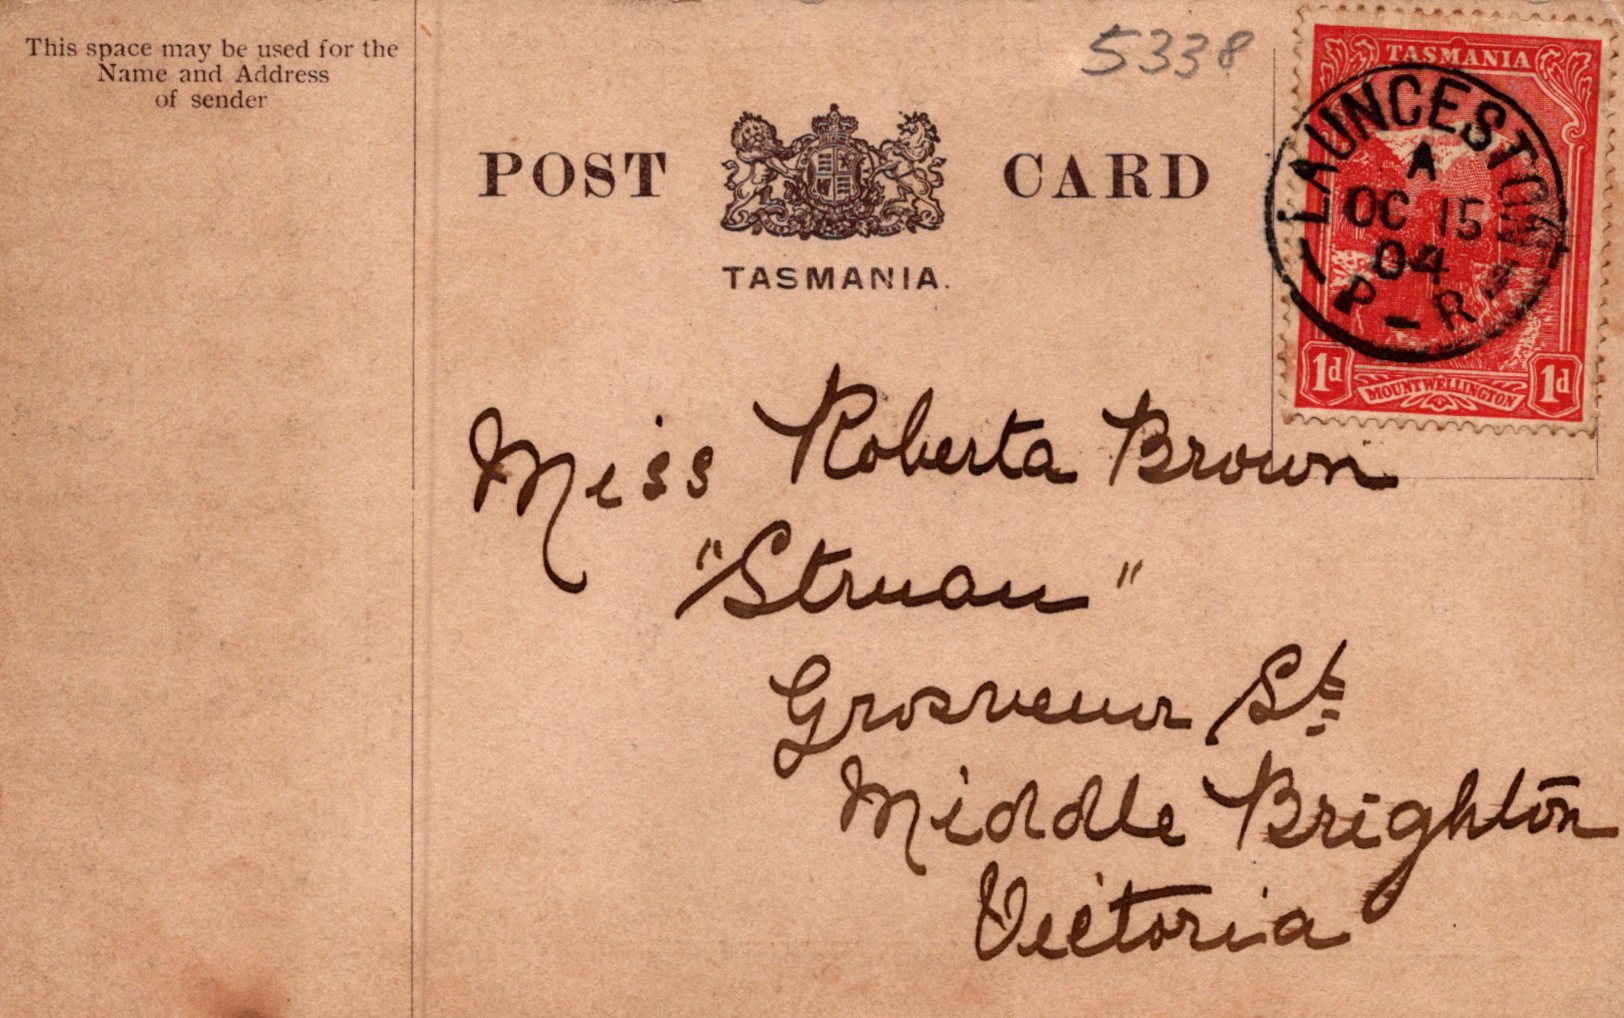 This space may be used for the
Name and Address
of sender
5338
POST CARD
TASMANIA.
TASMANIA
LAUNCESTON
A
OC 15
04
P-R
1d MOUNT WELLINGTON 1d
Miss Roberta Brown
"Struan"
Grosvenor St
Middle Brighton
Victoria